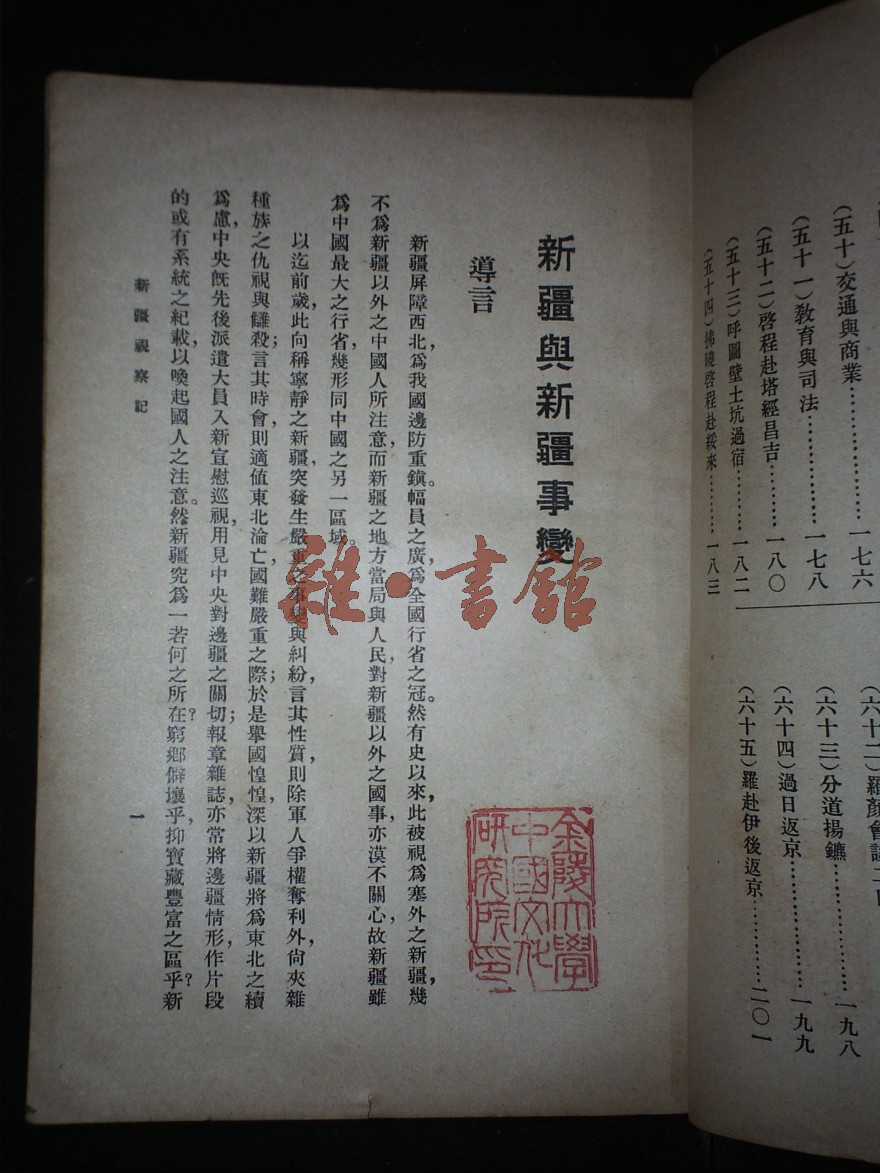 (五十)交通與商業……………一七六
(五十一)教育與司法……………一七八
(五十二)啓程赴塔經昌吉…………一八〇
(五十三)呼圖壁土坑過宿…………一八二
(五十四)拂曉啓程赴綏來…………一八三
(六十三)分道揚鑣……………一九八
(六十四)過日返京……………一九九
(六十五)羅赴伊後返京…………二〇一
新疆與新疆事變
導言
新疆屏障西北,爲我國邊防重鎭,幅員之廣,爲全國行省之冠。然有史以來,此被視爲塞外之新疆,幾
不爲新疆以外之中國人所注意,而新疆之地方當局與人民,對新疆以外之國事,亦漠不關心,故新疆雖
爲中國最大之行省,幾形同中國之另一區域。
以迄前歲,此向稱寧靜之新疆,突發生嚴重之事變與糾紛,言其性質,則除軍人爭權奪利外,尙夾雜
種族之仇視與讎殺;言其時會,則適値東北淪亡,國難嚴重之際;於是舉國惶惶,深以新疆將爲東北之續
爲慮,中央旣先後派遣大員入新宣慰巡視,用見中央對邊疆之關切;報章雜誌,亦常將邊疆情形,作片段
的或有系統之紀載,以喚起國人之注意。然新疆究爲一若何之所在?窮鄉僻壤乎,抑寶藏豐富之區乎?新
新疆視察記
一
金陵大學
中國文化
研究所印
雜·書館